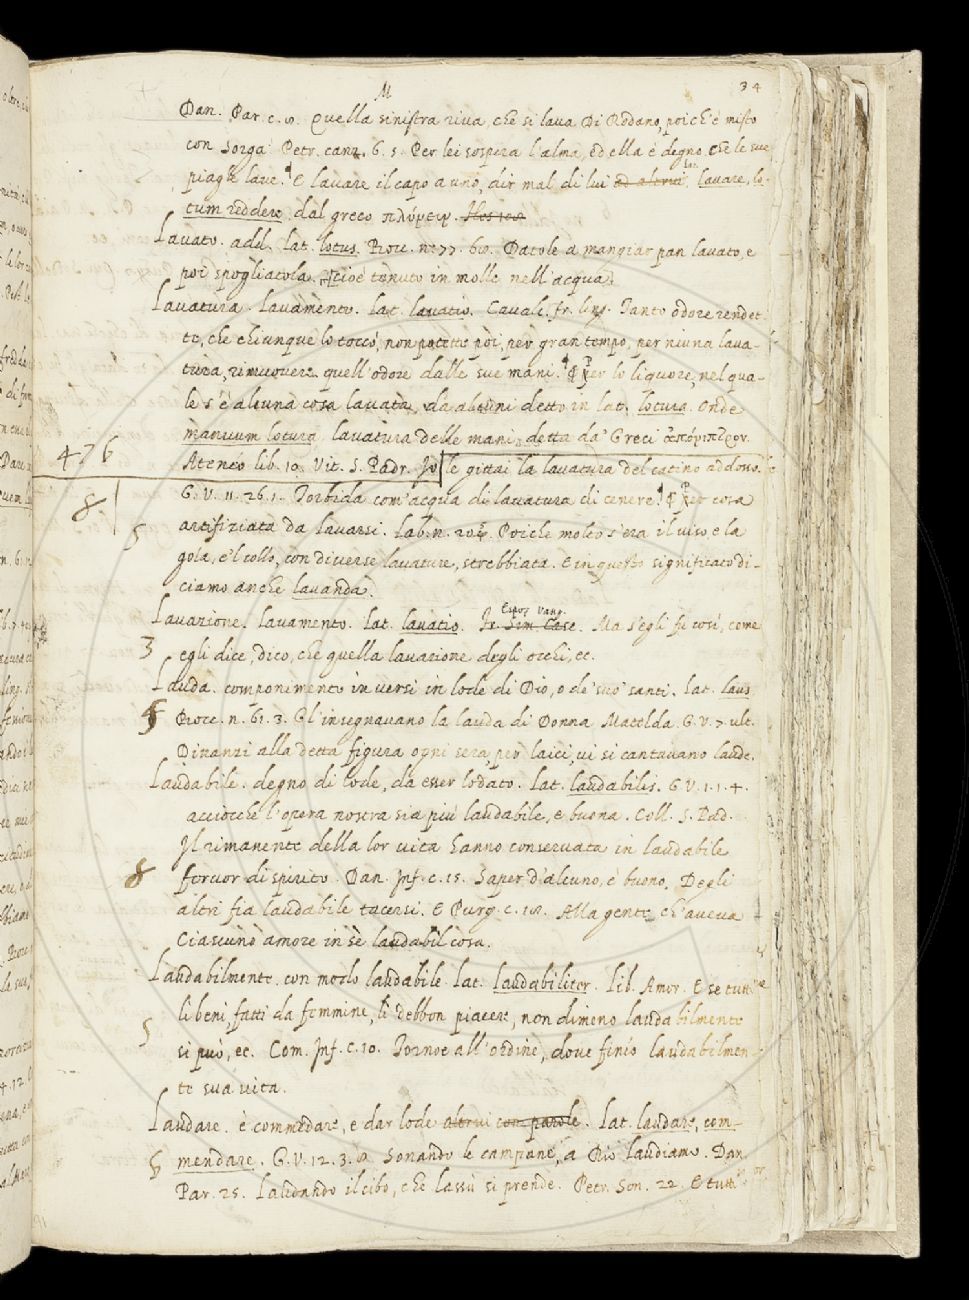 M 34
Dan. Par. c. 8. Quella sinistra riva, che si lava Di Rodano, poich'è misto
con Sorga Petr. canz. 6. 5. Per lei sospira l'alma, ed ella è degno, che le sue
piaghe lave. E lavare il capo a uno, dir mal di lui ad alcuni lat. lavare, lo-
tum reddere. dal greco πλύνειν.
Lavato. add. lat. lotus. Bocc. n. 77. 60. Datole a mangiar pan lavato, e
poi spogliatola, cioè tenuto in molle nell'acqua.
Lavatura. lavamento. lat. lavatio. Cavalc. fr. ling. Tanto odore rendet-
te, che chiunque lo toccò, non potette poi, per gran tempo, per niuna lava-
tura, rimuovere quell'odore dalle sue mani. ¶ Per lo liquore, nel qua-
le s'è alcuna cosa lavata, da alcuni detto in lat. lotura. Onde
manuum lotura. lavatura delle mani, detta da' Greci ἀπόνιπτρον.
476 Ateneo lib. 10. Vit. S. Padr. Io le gittai la lavatura del catino addosso.
8 G. V. 11. 26. 1. Torbida com'acqua di lavatura di cenere. ¶ Per cosa
5 artifiziata da lavarsi. Lab. n. 205. Poiche molto s'era il viso, e la
gola, e 'l collo, con diverse lavature, strebbiata. E in questo significato di-
ciamo anche lavanda.
Espos. Vang.
Lavazione. lavamento. lat. lavatio. Fr. Sim. Casc. Ma s'egli fu così, come
3 egli dice, dico, che quella lavazione degli occhi, ec.
Lauda. componimento in versi in lode di Dio, o de' suo' santi. lat. laus
Bocc. n. 61. 3. Gl'insegnavano la lauda di Donna Matelda. G. V. 7. ult.
Dinanzi alla detta figura ogni sera, per laici, vi si cantavano laude.
Laudabile. degno di lode, da esser lodato. lat. laudabilis. G. V. 1. 1. 4.
acciocchè l'opera nostra sia più laudabile, e buona. Coll. S. Pad.
Il rimanente della lor vita hanno conservata in laudabile
8 fervor di spirito. Dan. Inf. c. 15. Saper d'alcuno, è buono, Degli
altri fia laudabile tacersi. E Purg. c. 18. Alla gente, ch'aveva
Ciascuno amore in sè laudabil cosa.
Laudabilmente. con modo laudabile. lat. laudabiliter. lib. Amor. E se tutti
li beni fatti da femmine, li debbon piacere, non dimeno laudabilmente
5 si può, ec. Com. Inf. c. 10. Tornoe all'ordine, dove finio laudabilmen-
te sua vita.
Laudare. è commendare, e dar lode altrui con parole. lat. laudare, com-
6 mendare. G. V. 12. 3. 8. Sonando le campane, a Dio laudiamo. Dan.
Par. 25. Laudando il cibo, che lassù si prende. Petr. Son. 22. E tutt'